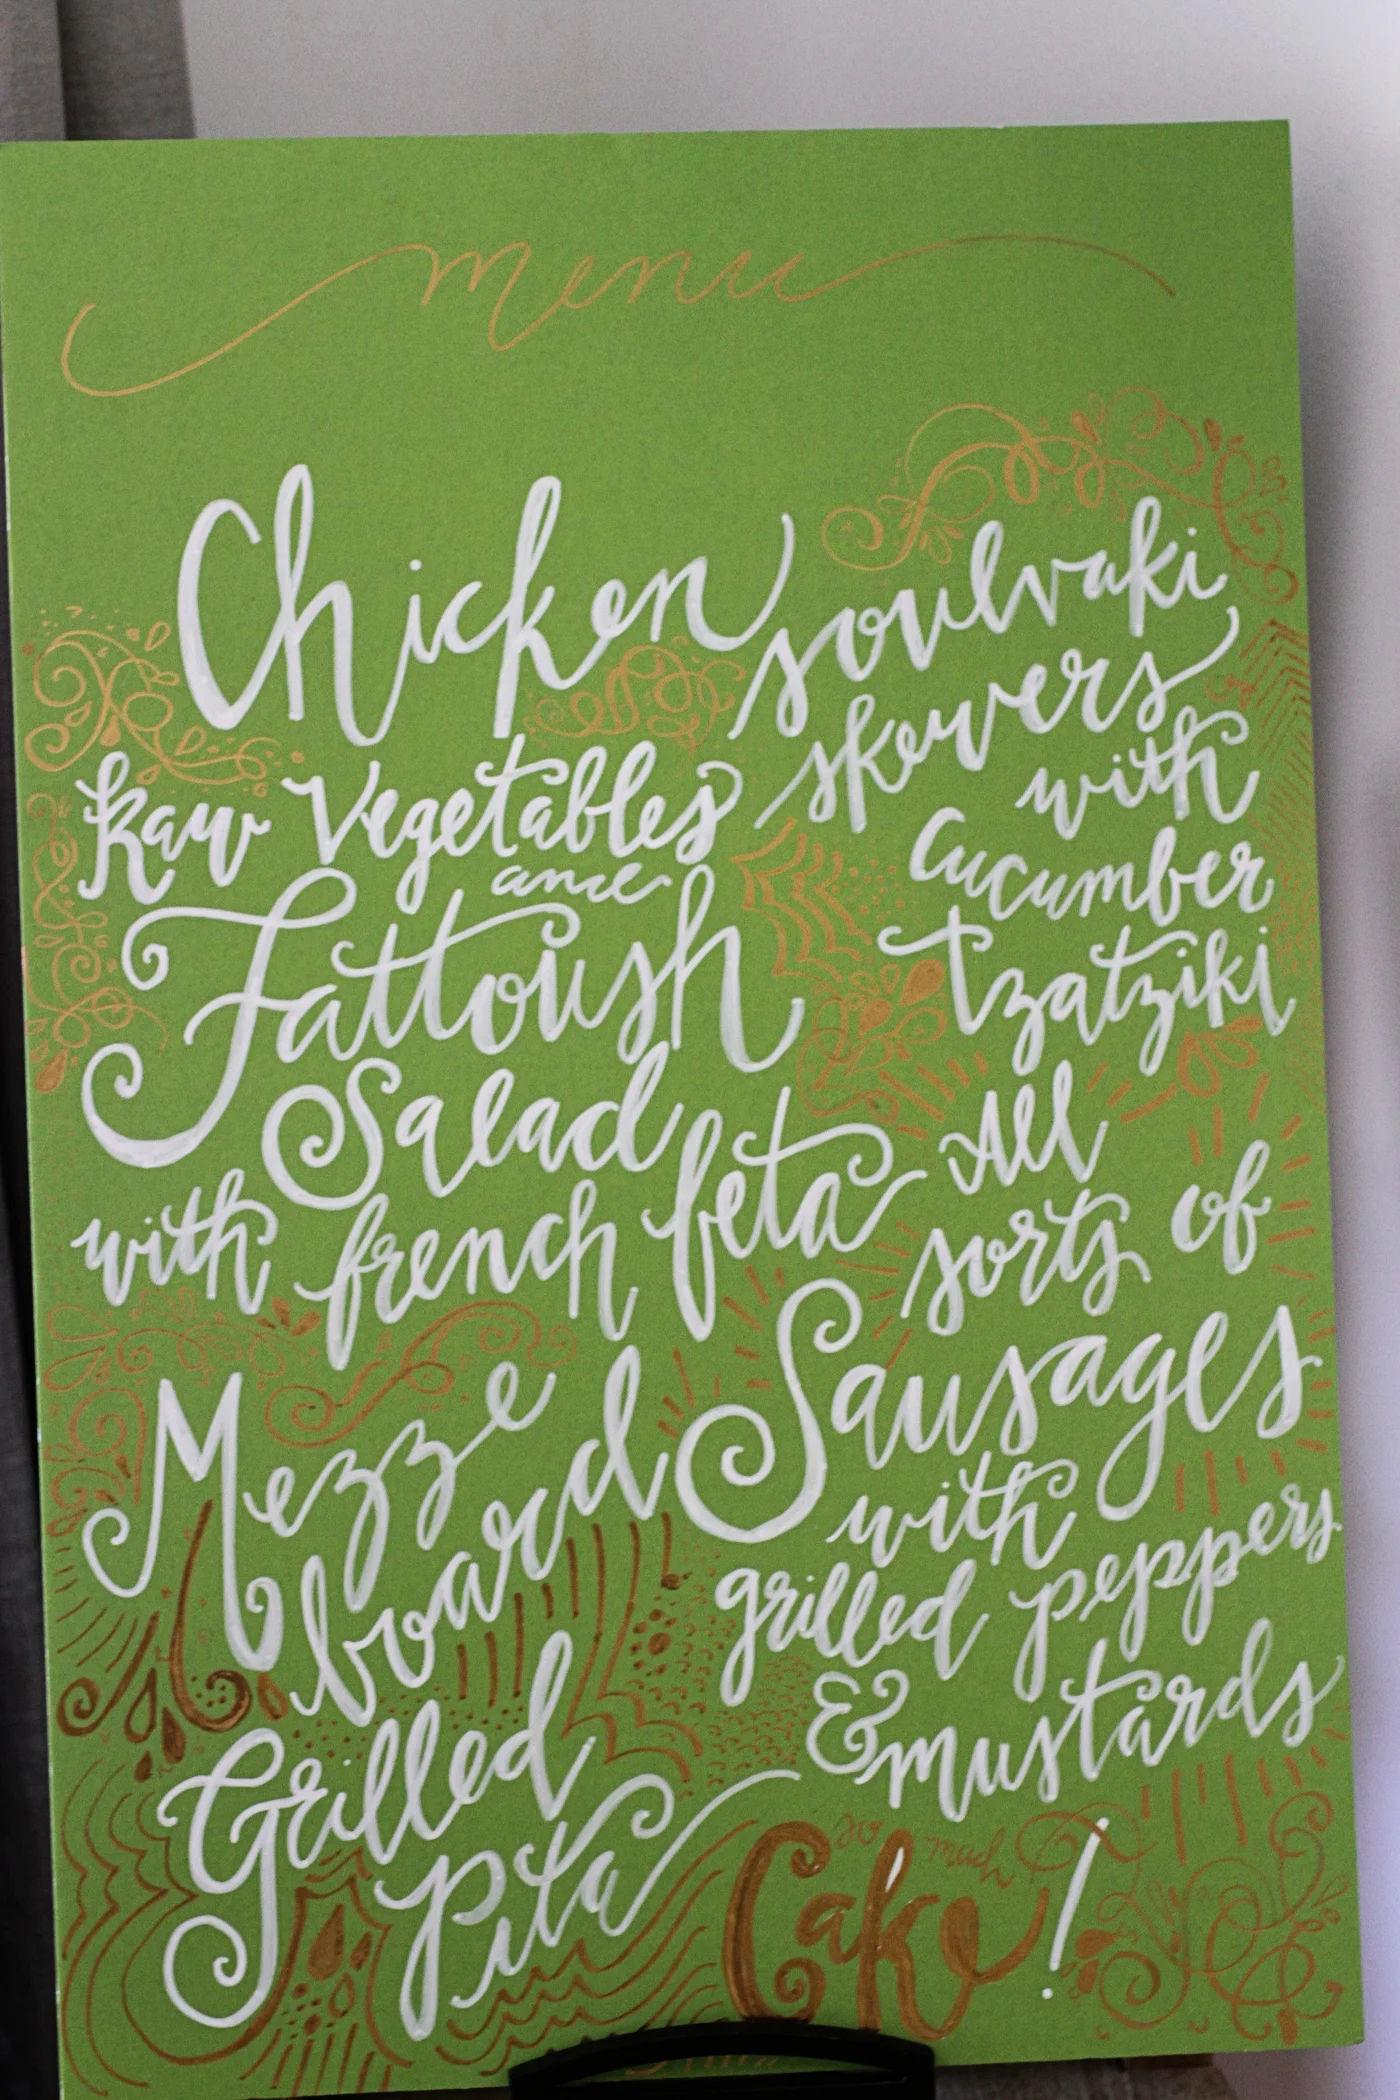 menu
Chicken soulvaki
skewers
with
Cucumber
tzatziki
Raw Vegetables
and
Fattoush
Salad
with french feta
All
sorts of
Sausages
with
grilled peppers
& mustards
Mezze
board
Grilled
pita
so much
Cake!